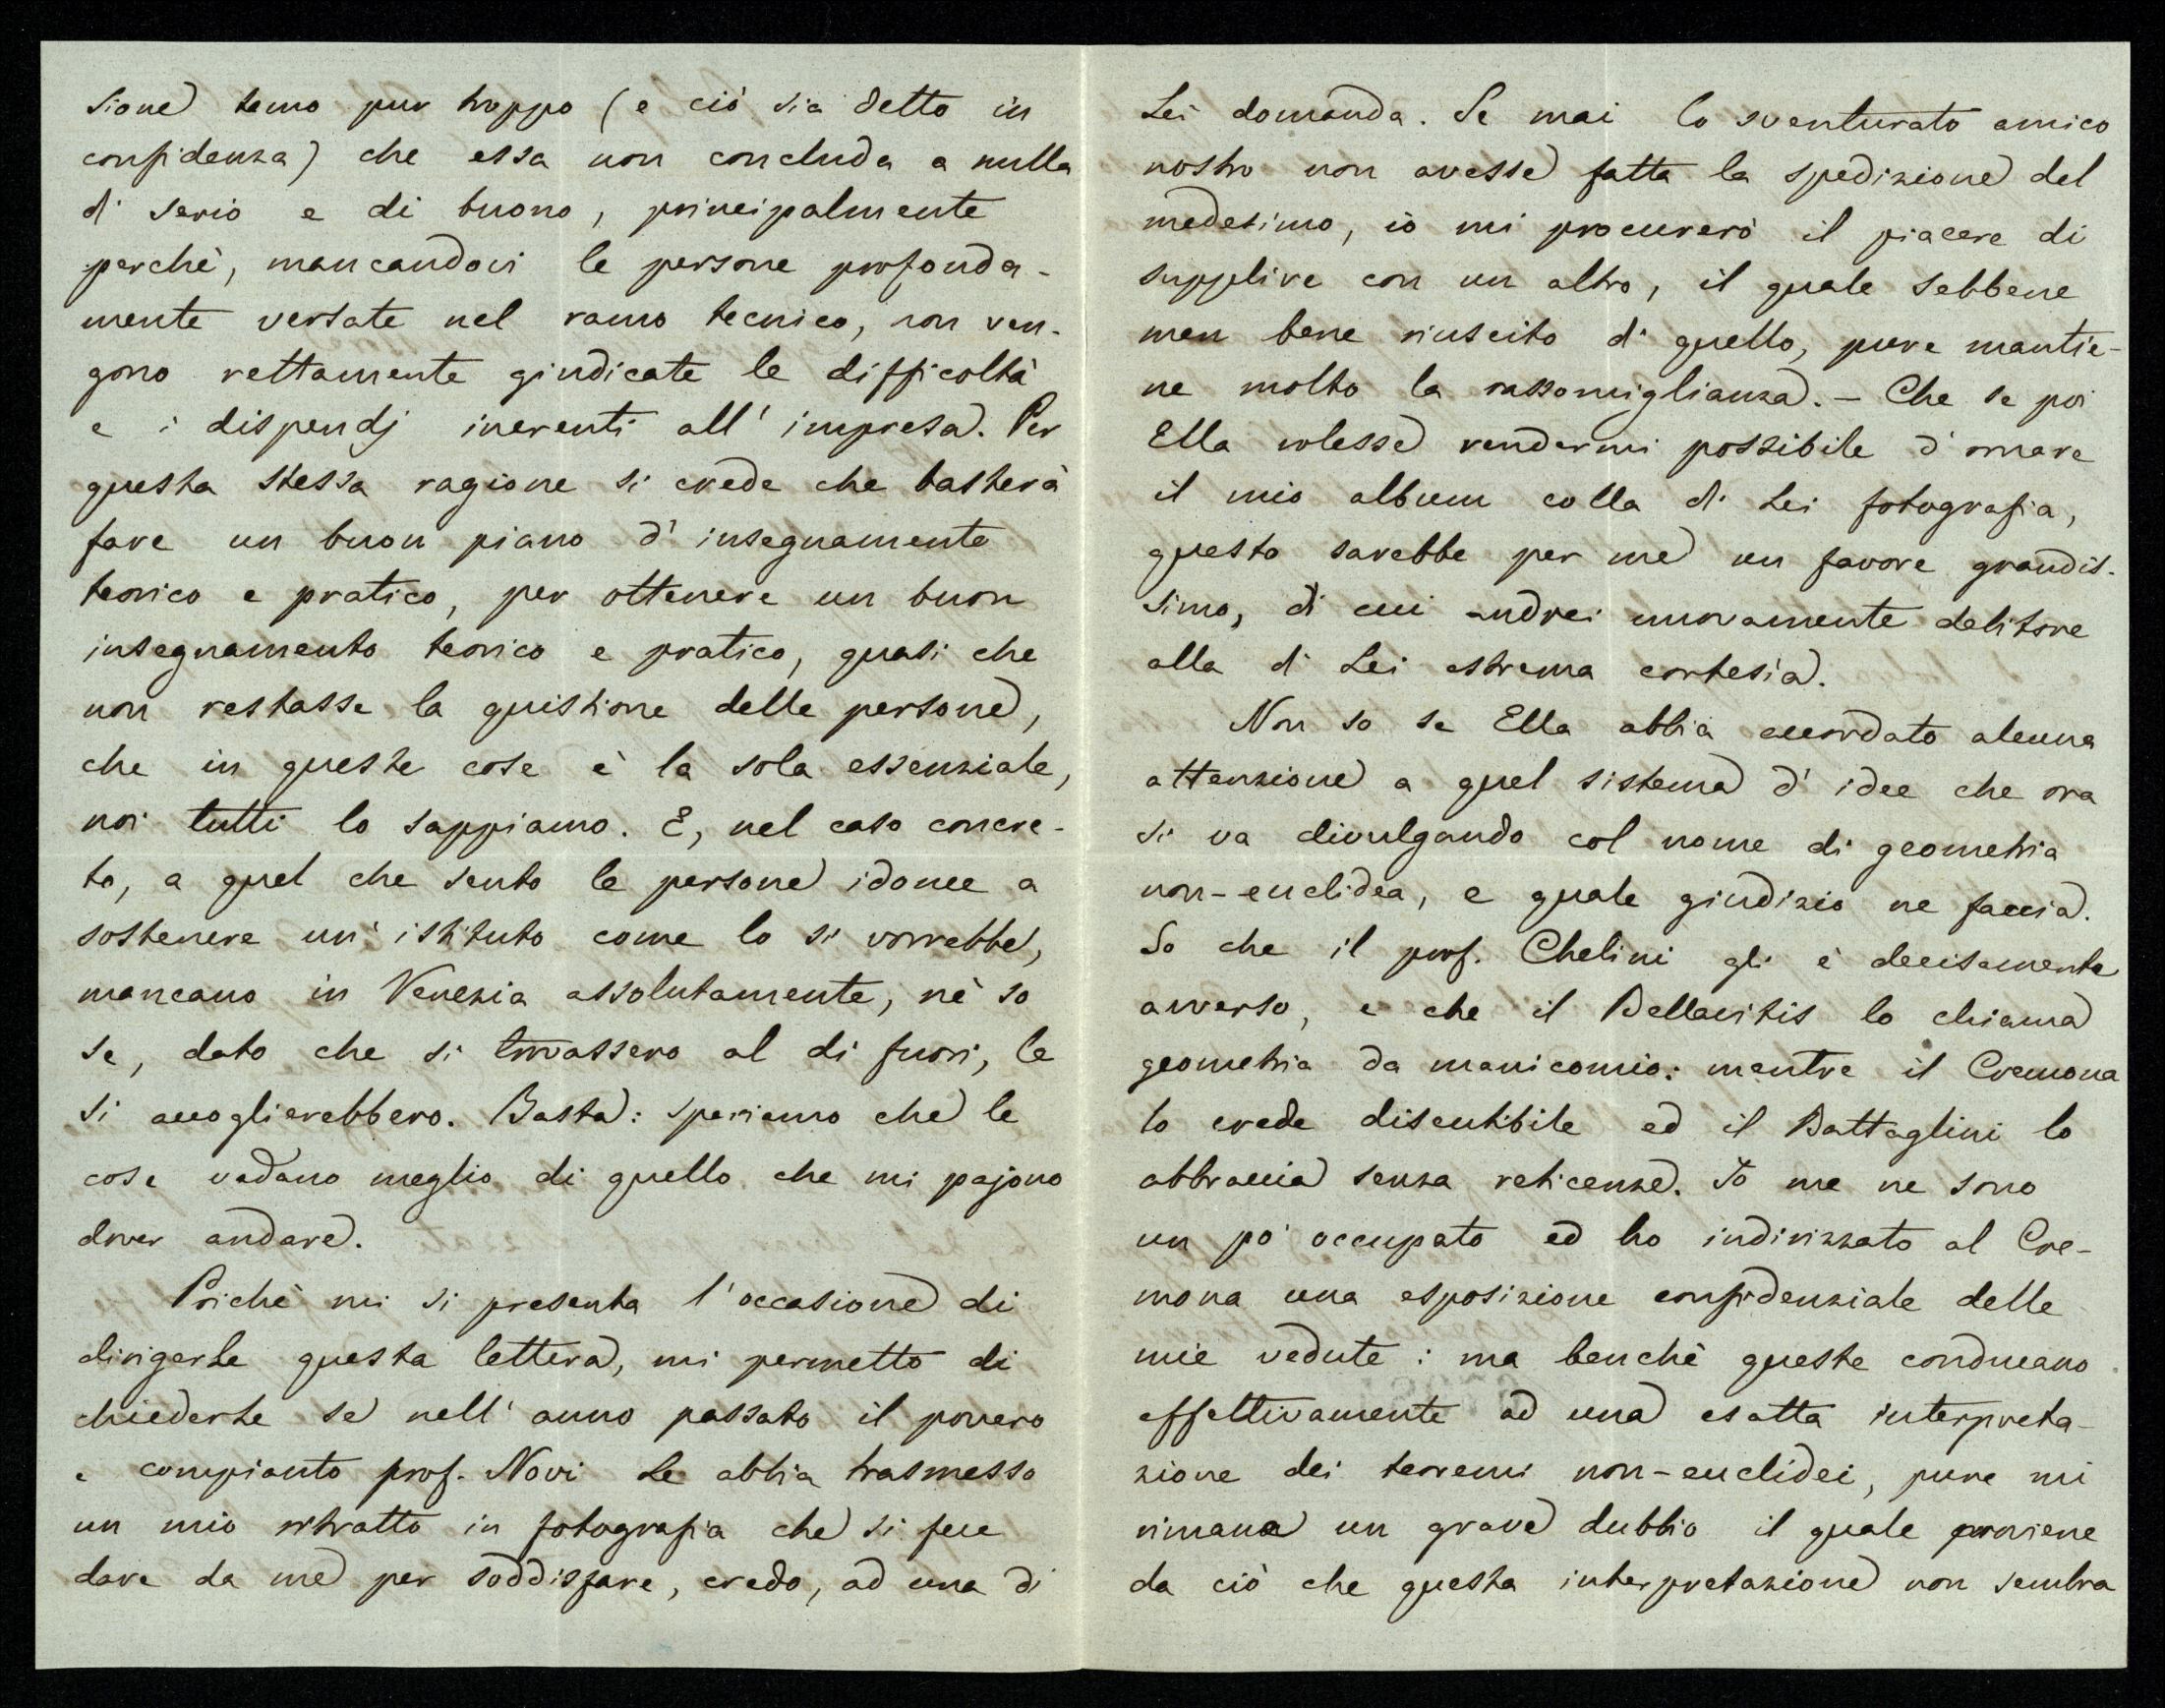 sione temo pur troppo (e ciò sia detto in
confidenza) che essa non concluda a nulla
di serio e di buono, principalmente
perchè, mancandovi le persone profonda-
mente versate nel ramo tecnico, non ven-
gono rettamente giudicate le difficoltà
e i dispendj inerenti all' impresa. Per
questa stessa ragione si crede che basterà
fare un buon piano d' insegnamento
teorico e pratico, per ottenere un buon
insegnamento teorico e pratico, quasi che
non restasse la quistione delle persone,
che in queste cose è la sola essenziale,
noi tutti lo sappiamo. E, nel caso concre-
to, a quel che sento le persone idonee a
sostenere un' istituto come lo si vorrebbe,
mancano in Venezia assolutamente, nè so
se, dato che si trovassero al di fuori, le
si accoglierebbero. Basta: speriamo che le
cose vadano meglio di quello che mi pajono
dover andare.
Poichè mi si presenta l' occasione di
dirigerle questa lettera, mi permetto di
chiederle se nell' anno passato il povero
e compianto prof. Novi Le abbia trasmesso
un mio ritratto in fotografia che si fece
dare da me per soddisfare, credo, ad una di
Lei domanda. Se mai lo sventurato amico
nostro non avesse fatta la spedizione del
medesimo, io mi procurerò il piacere di
supplire con un altro, il quale sebbene
men bene riuscito di quello, pure mantie-
ne molto la rassomiglianza. - Che se poi
Ella volesse rendermi possibile d' ornare
il mio album colla di Lei fotografia,
questo sarebbe per me un favore grandis-
simo, di cui andrei nuovamente debitore
alla di Lei estrema cortesia.
Non so se Ella abbia accordato alcuna
attenzione a quel sistema d' idee che ora
si va divulgando col nome di geometria
non-euclidea, e quale giudizio ne faccia.
So che il prof. Chelini gli è decisamente
avverso, e che il Bellavitis lo chiama
geometria da manicomio: mentre il Cremona
lo crede discutibile ed il Battaglini lo
abbraccia senza reticenze. Io me ne sono
un po' occupato ed ho indirizzato al Cre-
mona una esposizione confidenziale delle
mie vedute: ma benchè queste conducano
effettivamente ad una esatta interpreta-
zione dei teoremi non-euclidei, pure mi
rimane un grave dubbio il quale proviene
da ciò che questa interpretazione non sembra